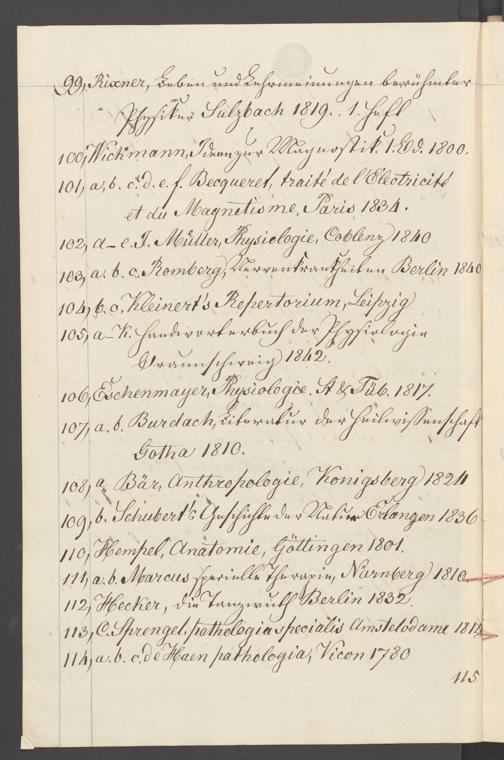 99, Rixner, Leben und Lehrmeinungen berühmter
Physiker Sulzbach 1819. 1. Heft
100, Wichmann, Ideen zur Diagnostik. 1. Bd. 1800.
101, a, b. c. d. e. f. Becqueret, traité de l'Électricité
et du Magnetisme, Paris 1834.
102, d-e. J. Müller, Physiologie, Coblenz 1840
103, a. b. c. Romberg, Nervenkrankheiten Berlin 1840
104, b. c. Kleinert's Repertorium, Leipzig
105, a-k. Handwörterbuch der Physiologie
Braunschweig 1842.
106, Eschenmayer, Physiologie. St & Tüb. 1817.
107, a. b. Burdach, Literatur der Heilwissenschaft
Gotha 1810.
108, a, Bär, Anthropologie, Konigsberg 1824
109, b. Schubert's Geschichte der Natur Erlangen 1836
110, Hempel, Anatomie, Göttingen 1801.
111, a. b. Marcus specielle Therapie, Nürnberg 1810
112, Hecker, die Tanzwuth Berlin 1832.
113, C. Sprengel, pathologia specialis Amstelodame 1814
114, a. b. c. de Haen pathologia, Vicon 1780
115